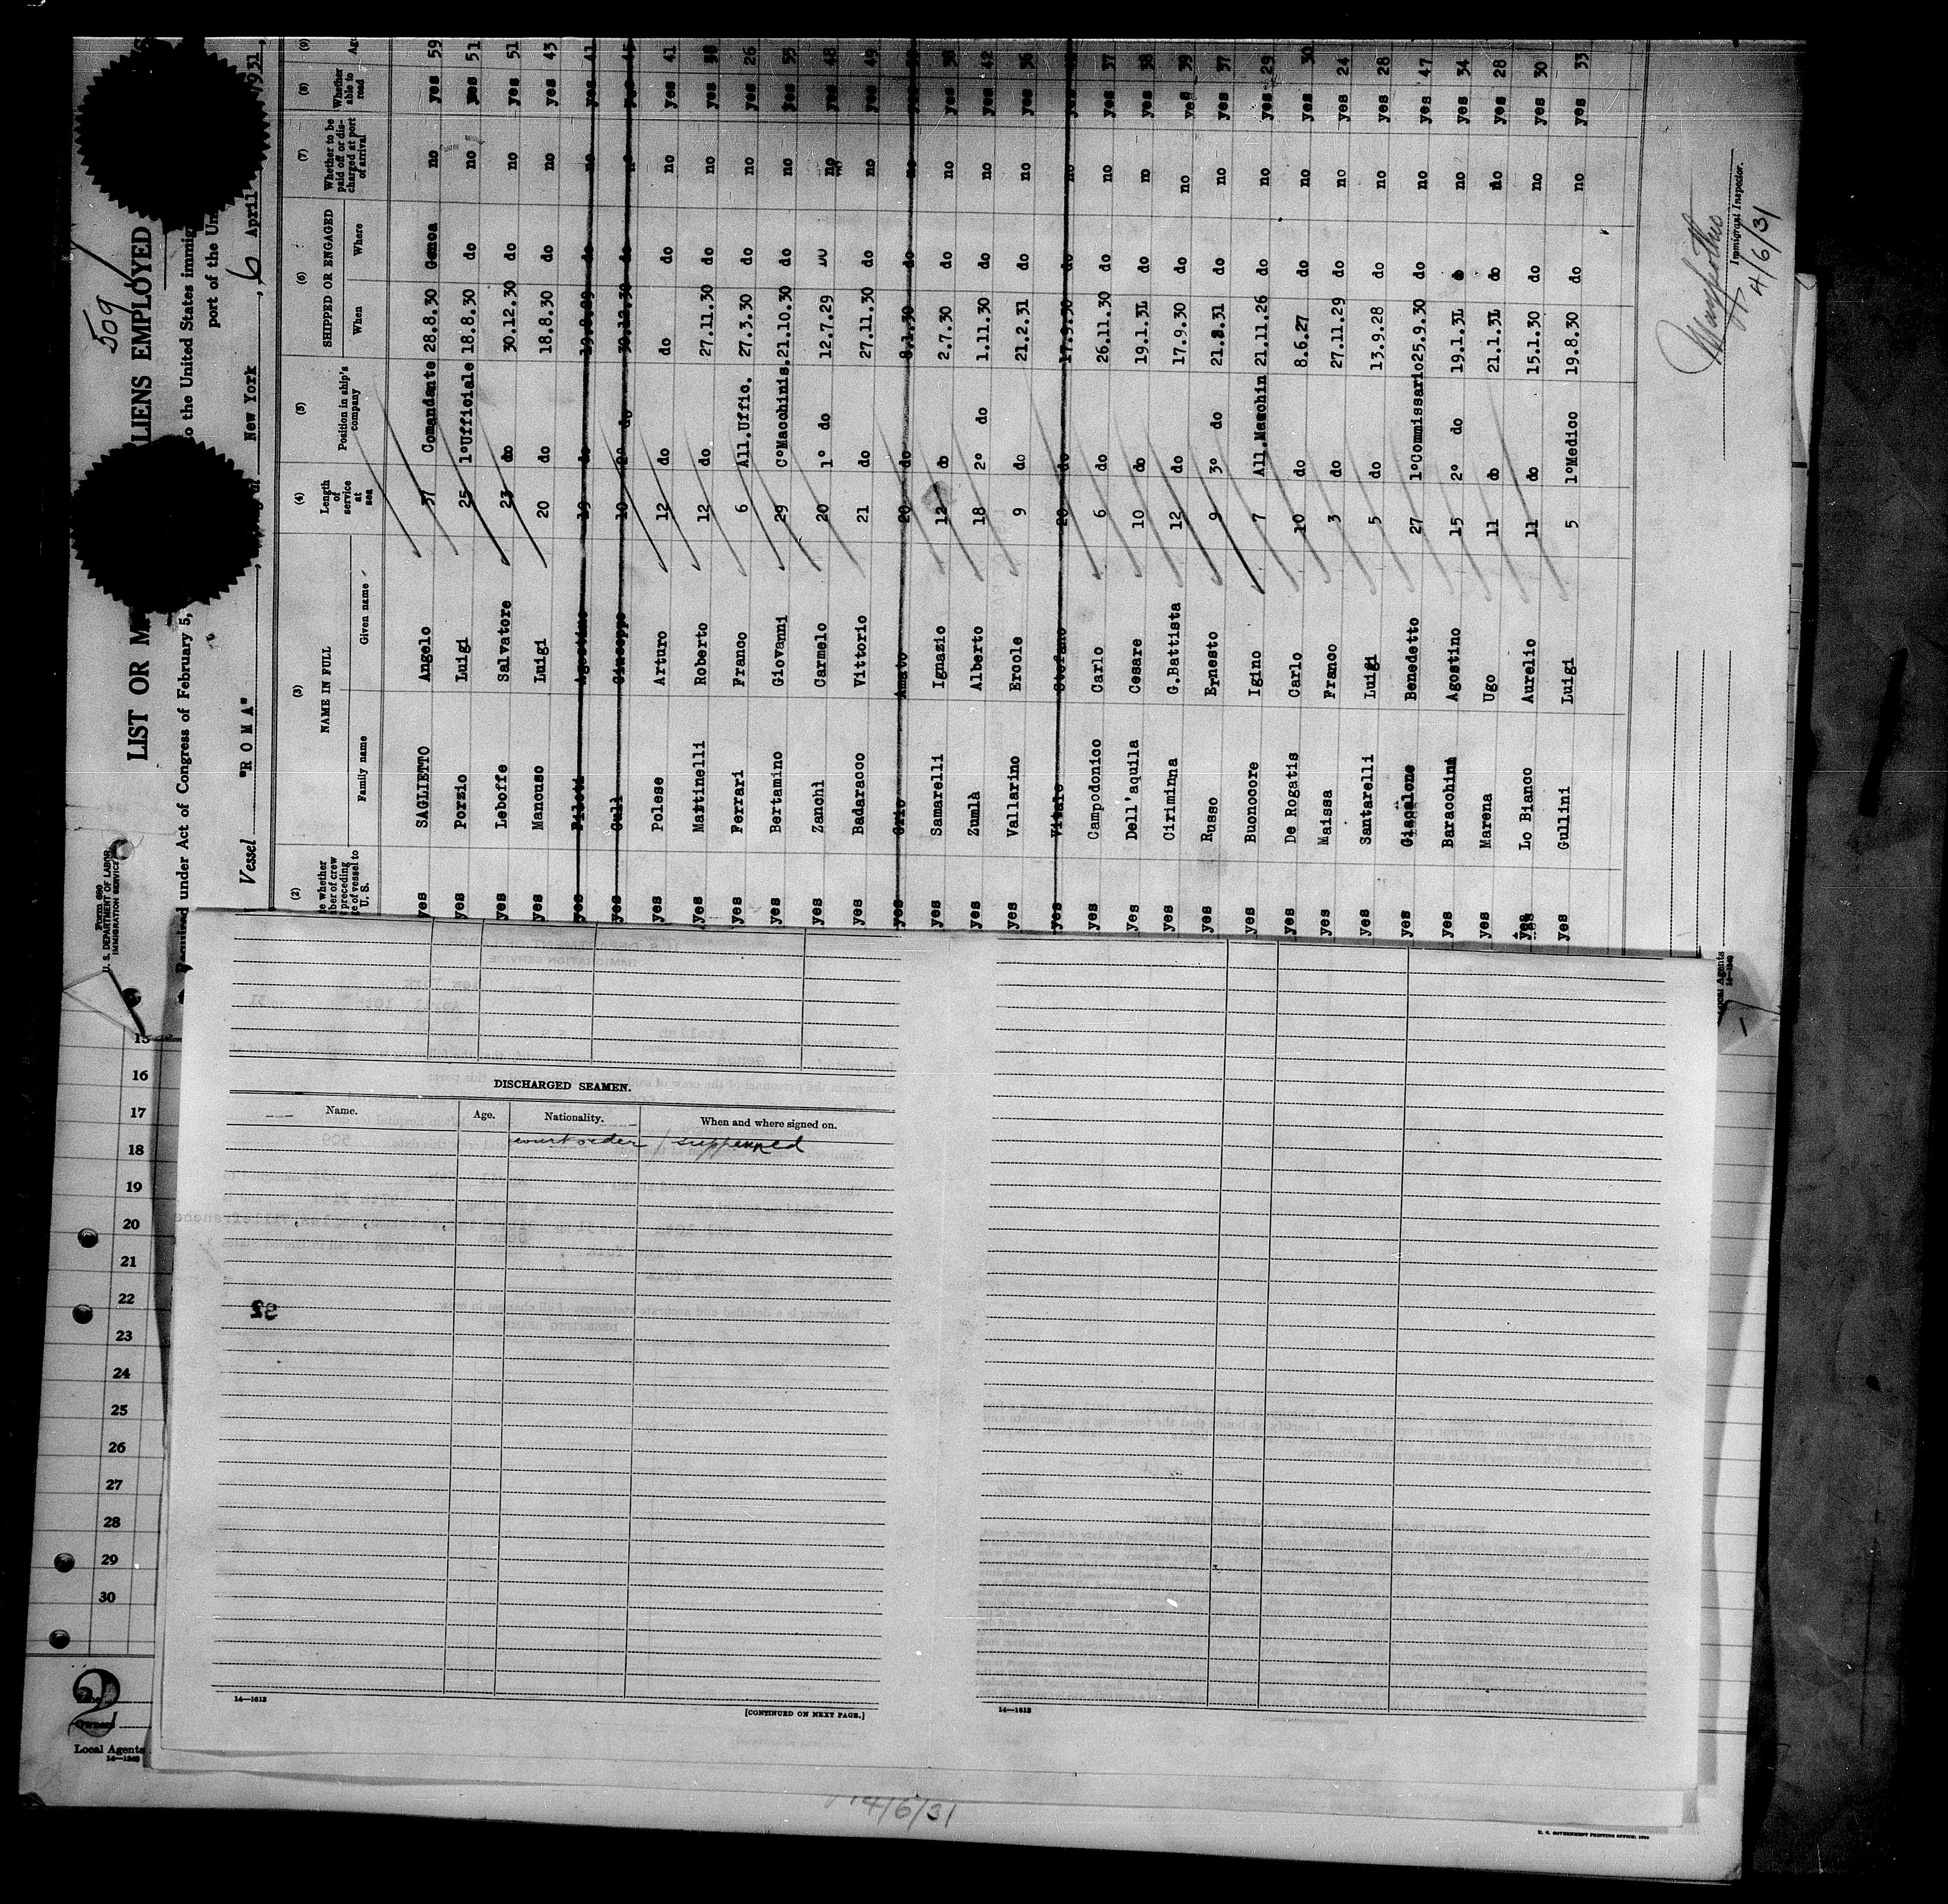 509
LIST OR
ALIENS EMPLOYED
Form 680
U. S. DEPARTMENT OF LABOR
IMMIGRATION SERVICE
Required under Act of Congress of February 5,
to the United States immig
port of the Un
Vessel "R O M A"
New York, 6 April 1931,
(2) (3) (4) (5) (6) (7) (8) (9)
NAME IN FULL
Family name Given name
Length of service at sea
Position in ship's company
SHIPPED OR ENGAGED
When Where
Whether to be paid off or discharged at port of arrival
Whether able to read
yes SAGLIETTO Angelo 37 Comandante 28.8.30 Genoa no yes 59
yes Porzio Luigi 25 1°Ufficiale 18.8.30 do no yes 51
yes Leboffe Salvatore 23 do 30.12.30 do no yes 51
yes Mancuso Luigi 20 do 18.8.30 do no yes 43
yes Agostino 19 do 19.8.29 do no yes 41
yes Giuseppe 10 2° do 30.12.30 do no yes 45
yes Polese Arturo 12 do do do no yes 41
yes Martinelli Roberto 12 do 27.11.30 do no yes
yes Ferrari Franco 6 All.Uffic. 27.3.30 do no yes 26
yes Bertamino Giovanni 29 C°Macchinis. 21.10.30 do no yes 55
yes Zanchi Carmelo 20 1° do 12.7.29 do no yes 48
yes Badaracco Vittorio 21 do 27.11.30 do no yes 49
yes Amato 20 do 8.1.30 do no yes
yes Samarelli Ignazio 12 do 2.7.30 do no yes 38
yes Zumla Alberto 18 2° do 1.11.30 do no yes 42
yes Vallarino Ercole 9 do 21.2.31 do no yes 36
yes Vitale Stefano 20 do 17.9.30 do no yes
yes Campodonico Carlo 6 do 26.11.30 do no yes 37
yes Dell'aquila Cesare 10 do 19.1.31 do no yes 38
yes Ciriminna G.Battista 12 do 17.9.30 do no yes 39
yes Russo Ernesto 9 3° do 21.2.31 do no yes 37
yes Buonocore Igino 7 All.Macchin 21.11.26 do no yes 29
yes De Rogatis Carlo 10 do 8.6.27 do no yes 30
yes Maissa Franco 3 do 27.11.29 do no yes 24
yes Santarelli Luigi 5 do 13.9.28 do no yes 28
yes Giacalone Benedetto 27 1°Commissario 25.9.30 do no yes 47
yes Baracchini Agostino 15 2° do 19.1.31 do no yes 34
yes Marena Ugo 11 do 21.1.31 do no yes 28
yes Lo Bianco Aurelio 11 do 15.1.30 do no yes 30
yes Gullini Luigi 5 1°Medico 19.8.30 do no yes 33
4/6/31
Immigrant Inspector.
Local Agents
14—1240
15
16
17
18
19
20
21
22
23
24
25
26
27
28
29
30
2
Owners
Local Agents
14—1240
DISCHARGED SEAMEN.
Name. Age. Nationality. When and where signed on.
14—1613
[CONTINUED ON NEXT PAGE.]
14—1613
4/6/31
U. S. GOVERNMENT PRINTING OFFICE: